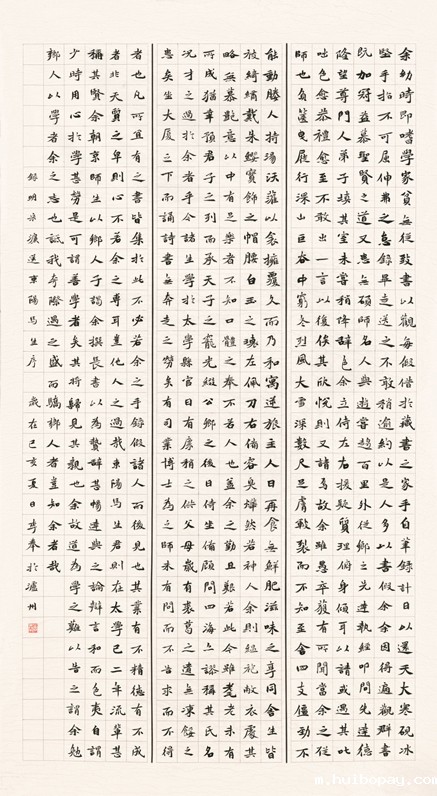 余幼時即嗜學家貧無從致書以觀每假借於藏書之家手自筆錄計日以還天大寒硯冰
堅手指不可屈伸弗之怠錄畢走送之不敢稍逾約是以人多以書假余余因得遍觀群書
既加冠益慕聖賢之道又患無碩師名人與遊嘗趨百里外從鄉之先達執經叩問先達德
隆望尊門人弟子填其室未嘗稍降辭色余立侍左右援疑質理俯身傾耳以請或遇其叱
咄色愈恭禮愈至不敢出一言以復俟其欣悅則又請焉故余雖愚卒獲有所聞當余之從
師也負篋曳屣行深山巨谷中窮冬烈風大雪深數尺足膚皸裂而不知至舍四支僵勁不
能動媵人持湯沃灌以衾擁覆久而乃和寓逆旅主人日再食無鮮肥滋味之享同舍生皆
被綺繡戴朱纓寶飾之帽腰白玉之環左佩刀右備容臭燁然若神人余則縕袍敝衣處其
略無慕艷意以中有足樂者不知口體之奉不若人也蓋余之勤且艱若此今雖耄老未有
所成猶幸預君子之列而承天子之寵光綴公卿之後日侍坐備顧問四海亦謬稱其氏名
況才之過於余者乎今諸生學於太學縣官日有廩稍之供父母歲有裘葛之遺無凍餒之
患矣坐大廈之下而誦詩書無奔走之勞矣有司業博士為之師未有問而不告求而不得
者也凡所宜有之書皆集於此不必若余之手錄假諸人而後見也其業有不精德有不成
者非天質之卑則心不若余之專耳豈他人之過哉東陽馬生君則在太學已二年流輩甚
稱其賢余朝京師生以鄉人子謁余撰長書以為贄辭甚暢達與之論辯言和而色夷自謂
少時用心於學甚勞是可謂善學者矣其將歸見其親也余故道為學之難以告之謂余勉
鄉人以學者余之志也詆我夸際遇之盛而驕鄉人者豈知余者哉
錄明宋濂送東陽馬生序 歲在己亥夏日李奉於瀘州
m.huibopay.com